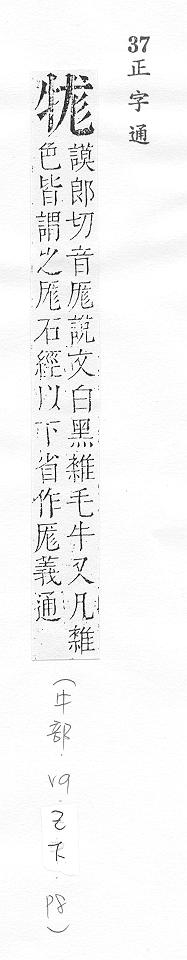 37正字通
牻
謨郎切音厖說文白黑雜毛牛又凡雜
色皆謂之厖石經以下省作厖義通
(牛部.v9.巳下.p8)